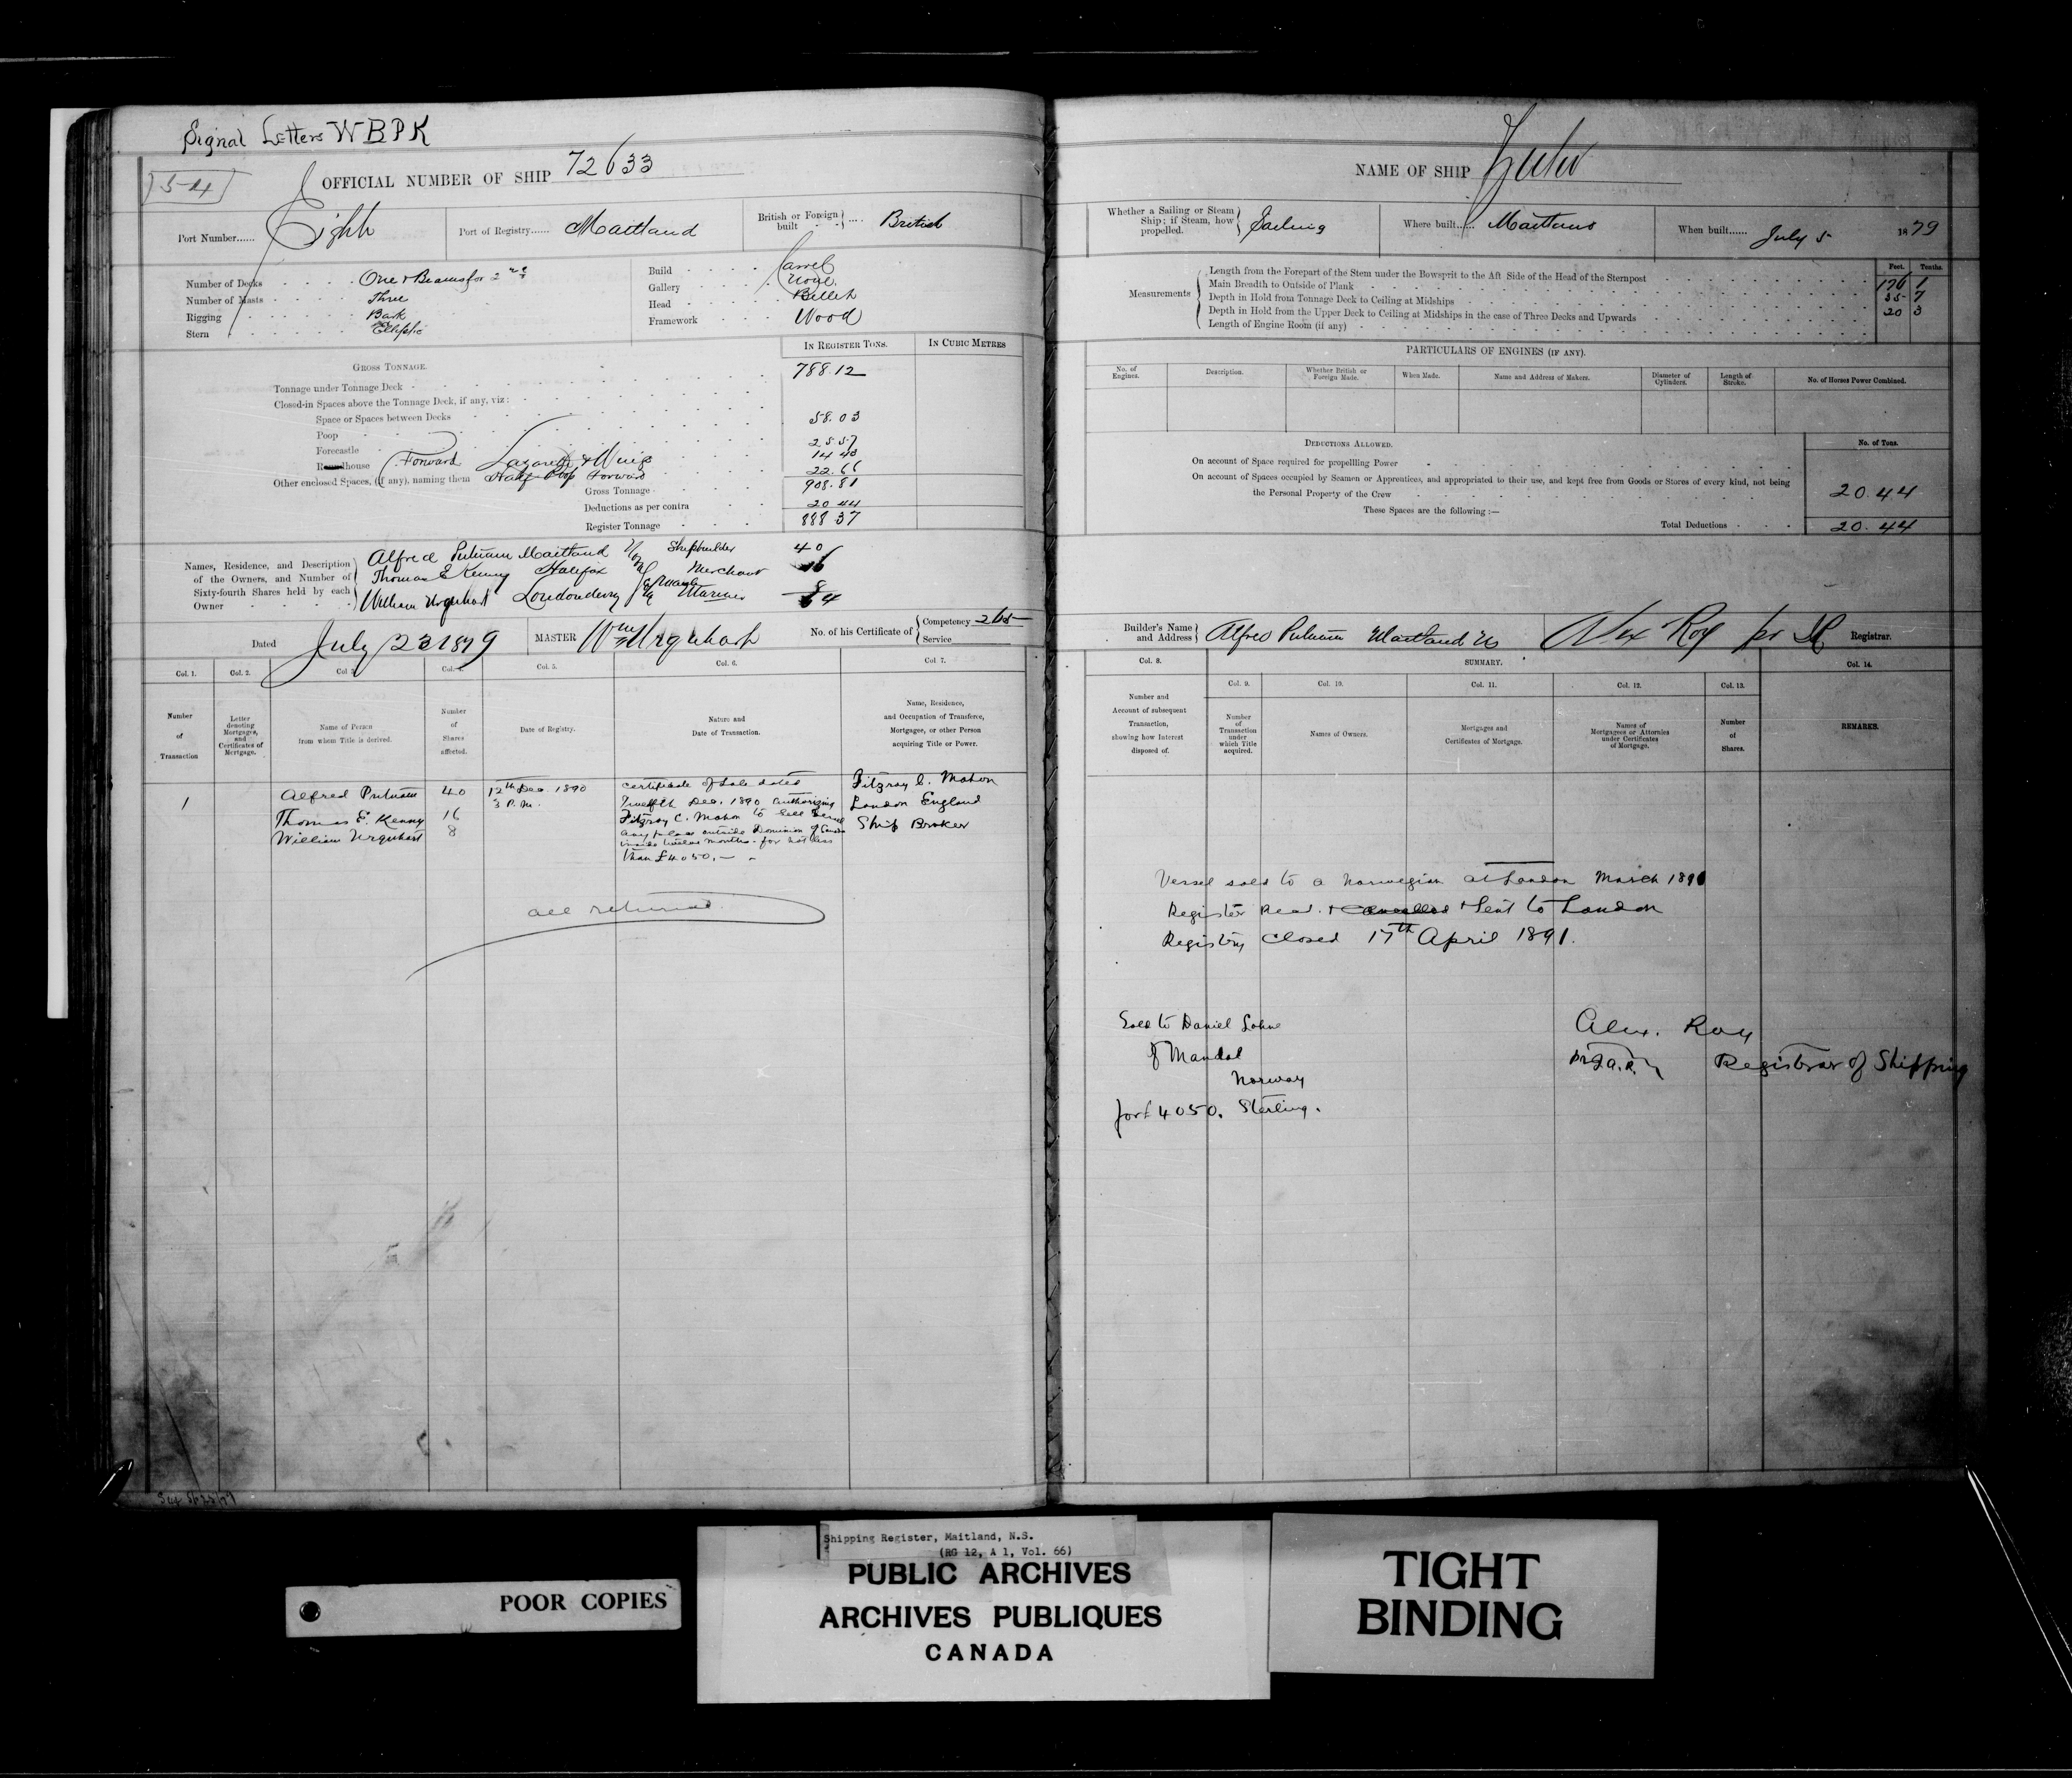 Signal Letters WBPK
54
OFFICIAL NUMBER OF SHIP 72633
Port Number...... Eight
Port of Registry...... Maitland
British or Foreign built .... British
Number of Decks One & Beams for 2nd
Number of Masts Three
Rigging Bark
Stern Elliptic
Build Carvel
Gallery None.
Head Billet
Framework Wood
IN REGISTER TONS. IN CUBIC METRES
GROSS TONNAGE.
Tonnage under Tonnage Deck 788.12
Closed-in Spaces above the Tonnage Deck, if any, viz:
Space or Spaces between Decks
Poop 58.03
Forecastle 25.57
Roundhouse Forward Lazarette & Wings 14.43
Other enclosed Spaces, (if any), naming them Half Poop Forward 22.66
Gross Tonnage 908.81
Deductions as per contra 20.44
Register Tonnage 888.37
Names, Residence, and Description of the Owners, and Number of Sixty-fourth Shares held by each Owner
Alfred Putnam Maitland Shipbuilder 40
Thomas E Kenny Halifax Merchant 16
William Urquhart Londonderry Mariner 8
64
Dated July 23 1879
MASTER Wm Urquhart
No. of his Certificate of Competency 265
Service
Col. 1. Col. 2. Col. 3. Col. 4. Col. 5. Col. 6. Col. 7.
Number of Transaction
Letter denoting Mortgages, and Certificates of Mortgage.
Name of Person from whom Title is derived.
Number of Shares affected.
Date of Registry.
Nature and Date of Transaction.
Name, Residence, and Occupation of Transferee, Mortgagee, or other Person acquiring Title or Power.
1
Alfred Putnam 40
Thomas E. Kenny 16
William Urquhart 8
12th Dec. 1890
3 P.M.
Certificate of Sale dated
Twelfth Dec. 1890 Authorizing
Fitzroy C. Mahon to sell Vessel
any place outside Dominion of Canada
inside twelve months - for not less
than £4050.
Fitzroy C. Mahon
London England
Ship Broker
all returned
NAME OF SHIP Zulu
Whether a Sailing or Steam Ship; if Steam, how propelled. Sailing
Where built...... Maitland
When built...... July 5 1879
Feet. Tenths.
Measurements
Length from the Forepart of the Stem under the Bowsprit to the Aft Side of the Head of the Sternpost 176 1
Main Breadth to Outside of Plank 35 7
Depth in Hold from Tonnage Deck to Ceiling at Midships 20 3
Depth in Hold from the Upper Deck to Ceiling at Midships in the case of Three Decks and Upwards
Length of Engine Room (if any)
PARTICULARS OF ENGINES (IF ANY).
No. of Engines. Description. Whether British or Foreign Made. When Made. Name and Address of Makers. Diameter of Cylinders. Length of Stroke. No. of Horses Power Combined.
DEDUCTIONS ALLOWED. No. of Tons.
On account of Space required for propellling Power
On account of Spaces occupied by Seamen or Apprentices, and appropriated to their use, and kept free from Goods or Stores of every kind, not being
the Personal Property of the Crew 20.44
These Spaces are the following :—
Total Deductions 20.44
Builder's Name and Address Alfred Putnam Maitland NS
Alex Roy
Registrar.
Col. 8. SUMMARY. Col. 14.
Col. 9. Col. 10. Col. 11. Col. 12. Col. 13.
Number and Account of subsequent Transaction, showing how Interest disposed of.
Number of Transaction under which Title acquired.
Names of Owners.
Mortgages and Certificates of Mortgage.
Names of Mortgagees or Attornies under Certificates of Mortgage.
Number of Shares.
REMARKS.
Vessel sold to a Norwegian at London March 1891
Register Recd. & cancelled & Sent to London
Registry Closed 17th April 1891.
Sold to Daniel Lohne
of Mandal
Norway
for £4050. Sterling.
Alex. Roy
Registrar of Shipping
POOR COPIES
Shipping Register, Maitland, N.S.
(RG 12, A 1, Vol. 66)
PUBLIC ARCHIVES
ARCHIVES PUBLIQUES
CANADA
TIGHT
BINDING